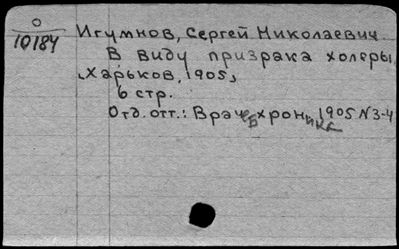 О
10184
Игумнов, Сергей Николаевич
В виду призрака холеры.
[Харьков, 1905],
6 стр.
Отд. отт.: Врачеб хроника 1905 N3-4